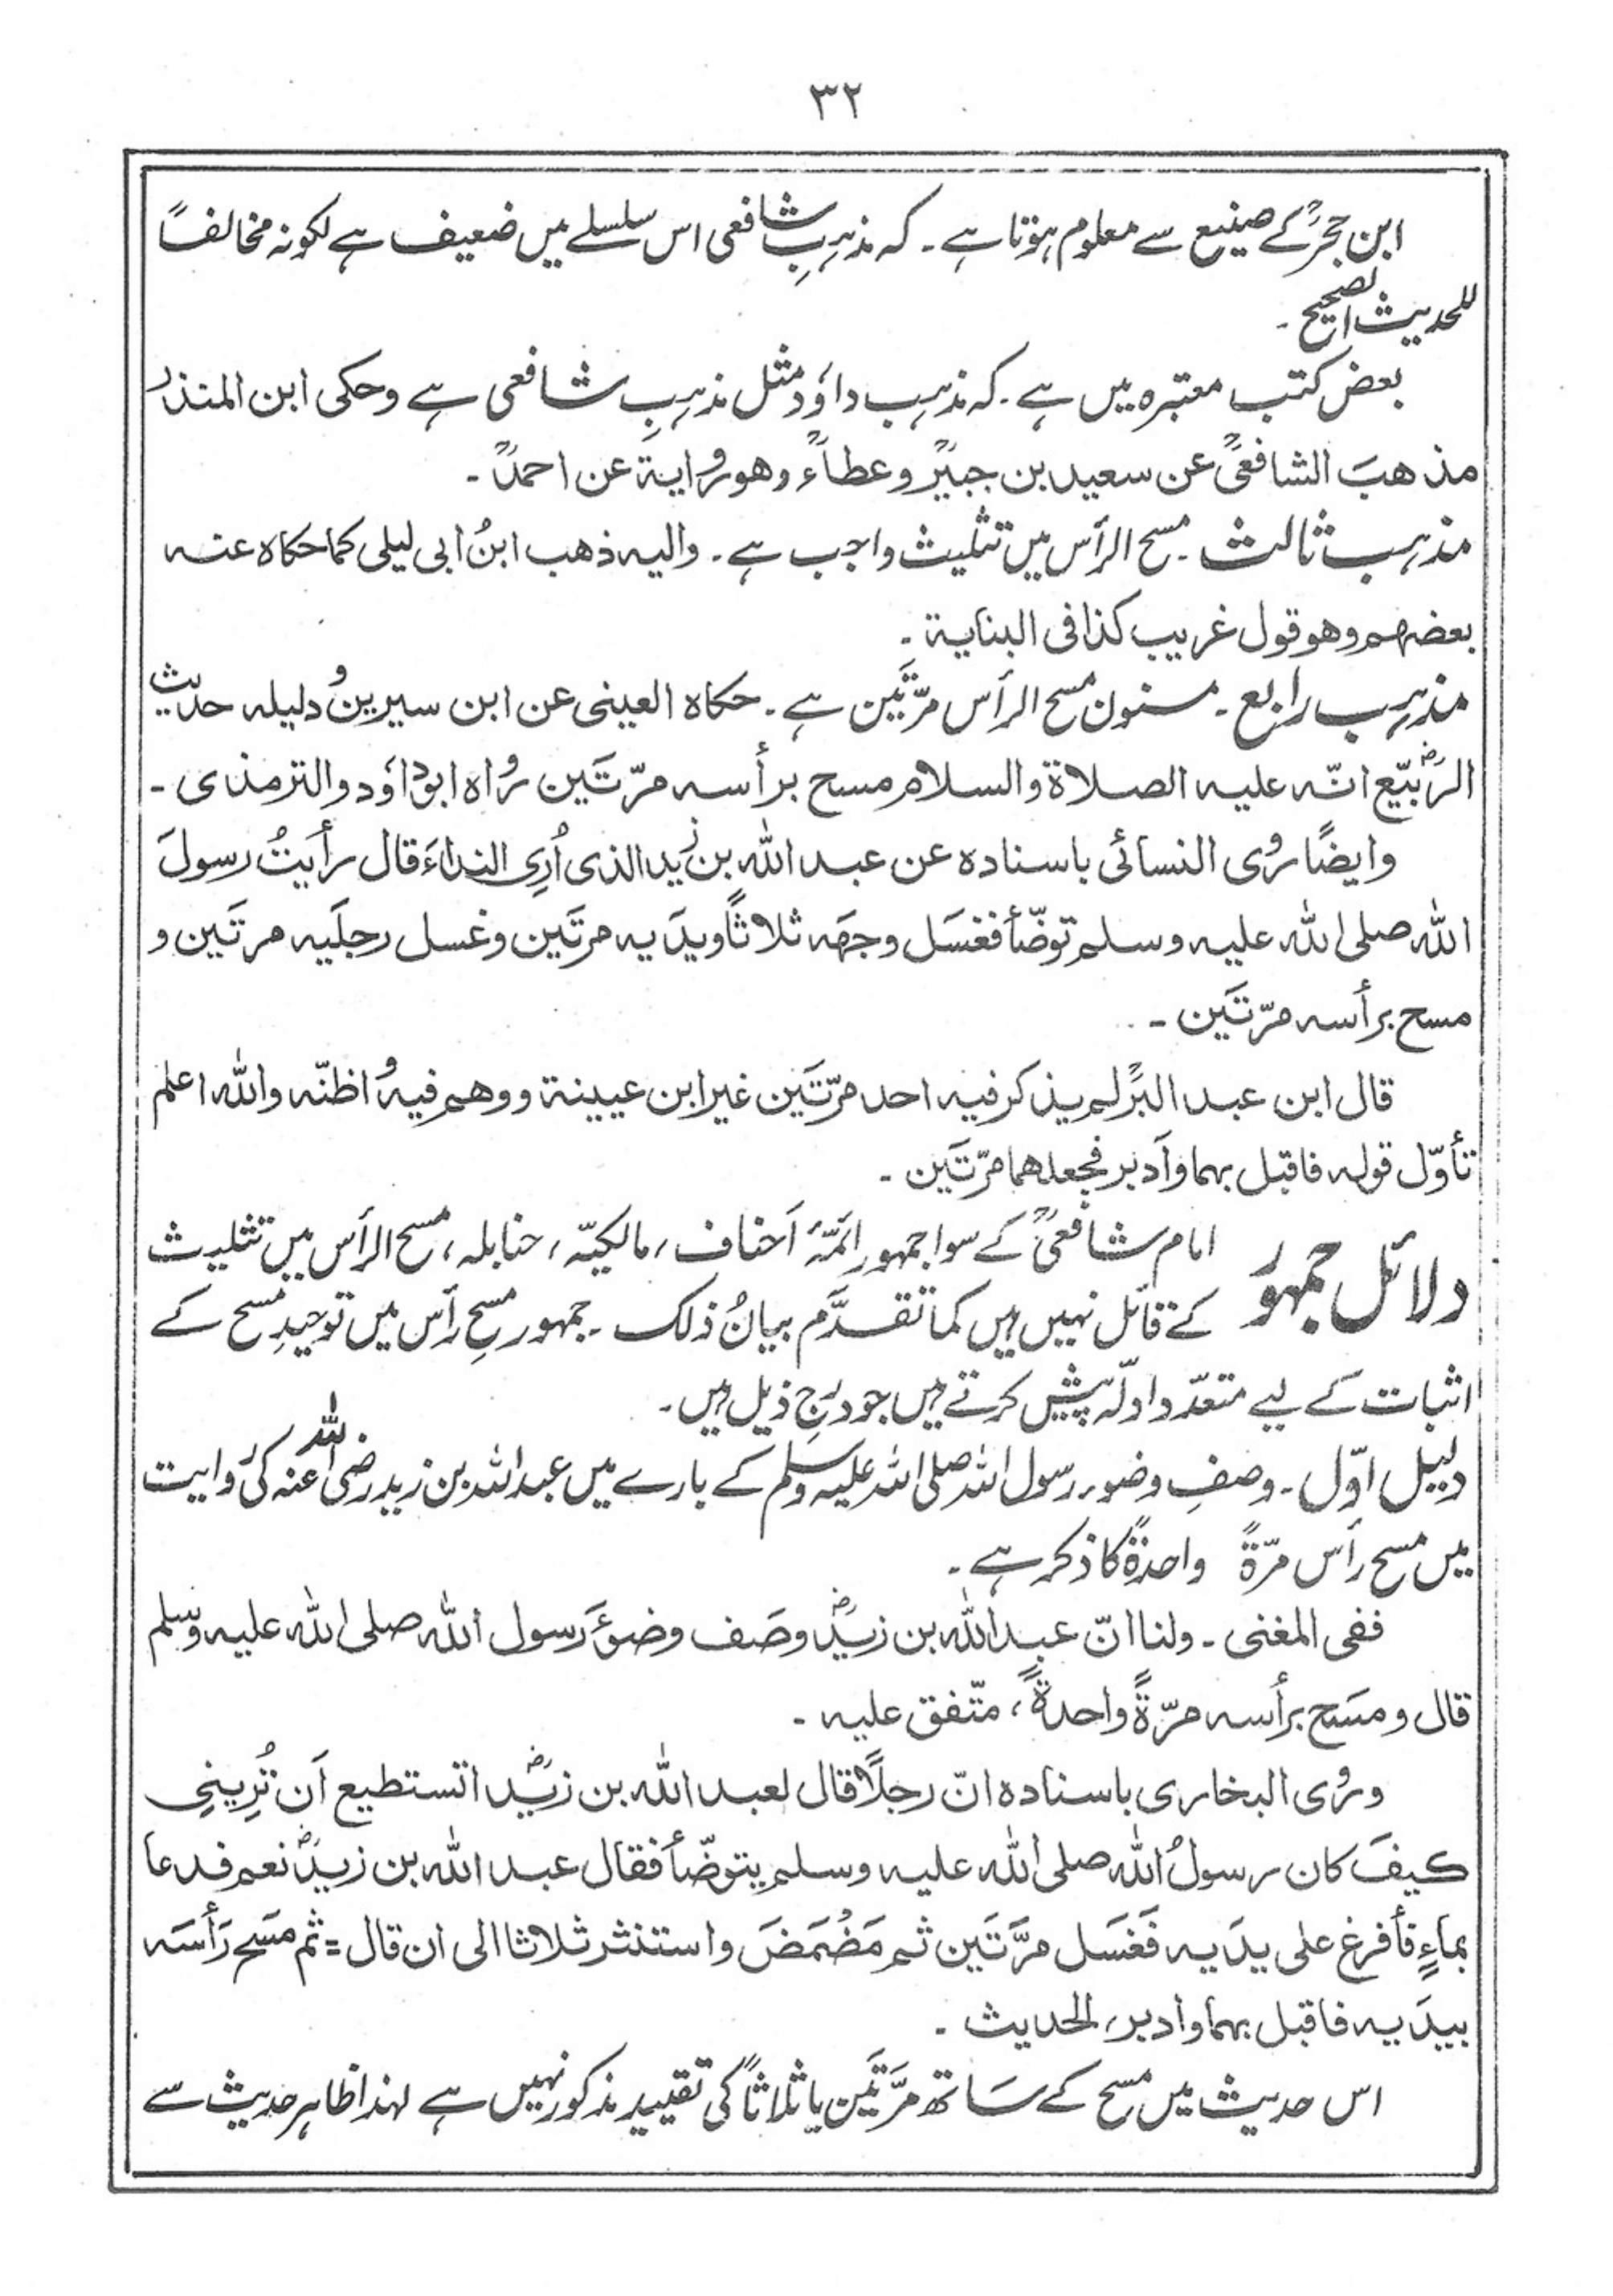 ۳۲
ابن حجرؒ کے صنیع سے معلوم ہوتا ہے ۔ کہ مذہبِ شافعی اس سلسلے میں ضعیف ہے لکونہ مخالفًا
للحدیث الصحیح ۔
بعض کتب معتبرہ میں ہے ۔ کہ مذہب داؤد مثل مذہبِ شافعی ہے وحکی ابن المنذر
مذهبَ الشافعیؒ عن سعید بن جبیرؒ وعطاءؒ وهو روایة عن احمدؒ ۔
مذہب ثالث ۔ مسح الرأس میں تثلیث واجب ہے ۔ والیه ذهب ابنُ ابی لیلی کما حکاه عنه
بعضهم وهو قول غریب کذا فی البنایة ۔
مذہب رابع ۔ مسنون مسح الرأس مرّتَین ہے ۔ حکاه العینی عن ابن سیرین و دلیله حدیث
الرُّبَیّعؓ انّه علیه الصلاة والسلام مسح برأسه مرّتَین رواه ابوداؤد والترمذی ۔
وایضًا روی النسائی باسناده عن عبد الله بن زید الذی اُرِی النداءَ قال رأیتُ رسولَ
الله صلی الله علیه وسلم توضّأ فغسَل وجهَه ثلاثًا ویدَیه مرتَین وغسل رجلَیه مرتَین و
مسح برأسه مرّتَین ۔
قال ابن عبد البرؒ لم یذکر فیه احد مرّتَین غیر ابن عیینة ووهم فیه و اظنّه والله اعلم
تأوّل قوله فاقبل بهما وأدبر فجعلهما مرّتَین ۔
دلائل جمہور
امام شافعیؒ کے سوا جمہور ائمۂ اَحناف ، مالکیّہ ، حنابلہ ، مسح الرأس میں تثلیث
کے قائل نہیں ہیں کما تقدَّم بیانُ ذلک ۔ جمہور مسحِ رأس میں توحیدِ مسح کے
اثبات کے لیے متعدّد ادلّہ پیش کرتے ہیں جو درجِ ذیل ہیں ۔
دلیل اوّل ۔ وصفِ وضوء رسول اللہ صلی اللہ علیہ وسلم کے بارے میں عبد اللہ بن زید رضی اللہ عنہ کی روایت
میں مسح رأس مرّةً واحدةً کا ذکر ہے ۔
ففی المغنی ۔ ولنا انّ عبد الله بن زیدؓ وصَف وضوءَ رسول الله صلی الله علیه وسلم
قال و مسَح برأسه مرّةً واحدةً ، متّفق علیه ۔
وروی البخاری باسناده انّ رجلًا قال لعبد الله بن زیدؓ اتستطیع اَن تُرِینِی
کیفَ کان رسولُ الله صلی الله علیه وسلم یتوضّأ فقال عبد الله بن زیدؓ نعم فدعا
بماءٍ فأفرغ علی یدَیه فَغَسَل مرَّتَین ثم مَضْمَضَ واستنثر ثلاثا الی ان قال = ثم مَسَح رَأسَه
بیدَیه فاقبل بهما وادبر ، الحدیث ۔
اس حدیث میں مسح کے ساتھ مرَّتَین یا ثلاثاً کی تقیید مذکور نہیں ہے لہذا ظاہر حدیث سے